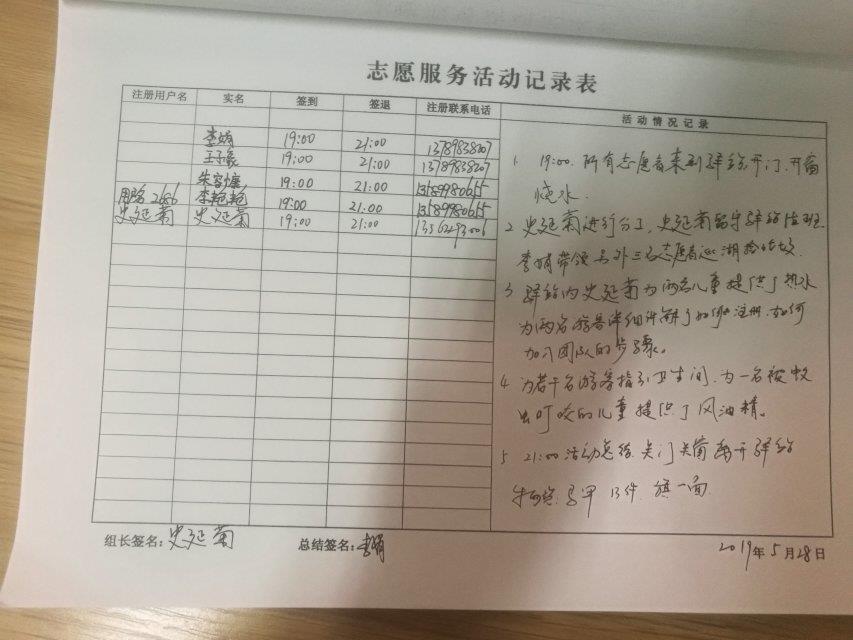 志愿服务活动记录表
注册用户名 实名 签到 签退 注册联系电话 活动情况记录
李娟 19:00 21:00 13789838207
王子豪 19:00 21:00 13789838207
朱容 19:00 21:00 13589980655
用户名2686 李艳艳 19:00 21:00 13589980655
史延菊 史延菊 19:00 21:00
1 19:00.所有志愿者来到驿站,开门,开窗
烧水.
2 史延菊进行分工,史延菊留守驿站值班.
李娟带领另外三名志愿者巡湖捡垃圾.
3 驿站内史延菊为两名儿童提供了热水
为两名游客详细讲解了如何注册.如何
加入团队的步骤。
4 为若干名游客指引卫生间.为一名被蚊
虫叮咬的儿童提供了风油精。
5 21:00活动总结.关门关窗离开驿站
马甲13件.旗一面.
组长签名:史延菊 总结签名:李娟
2019年5月28日